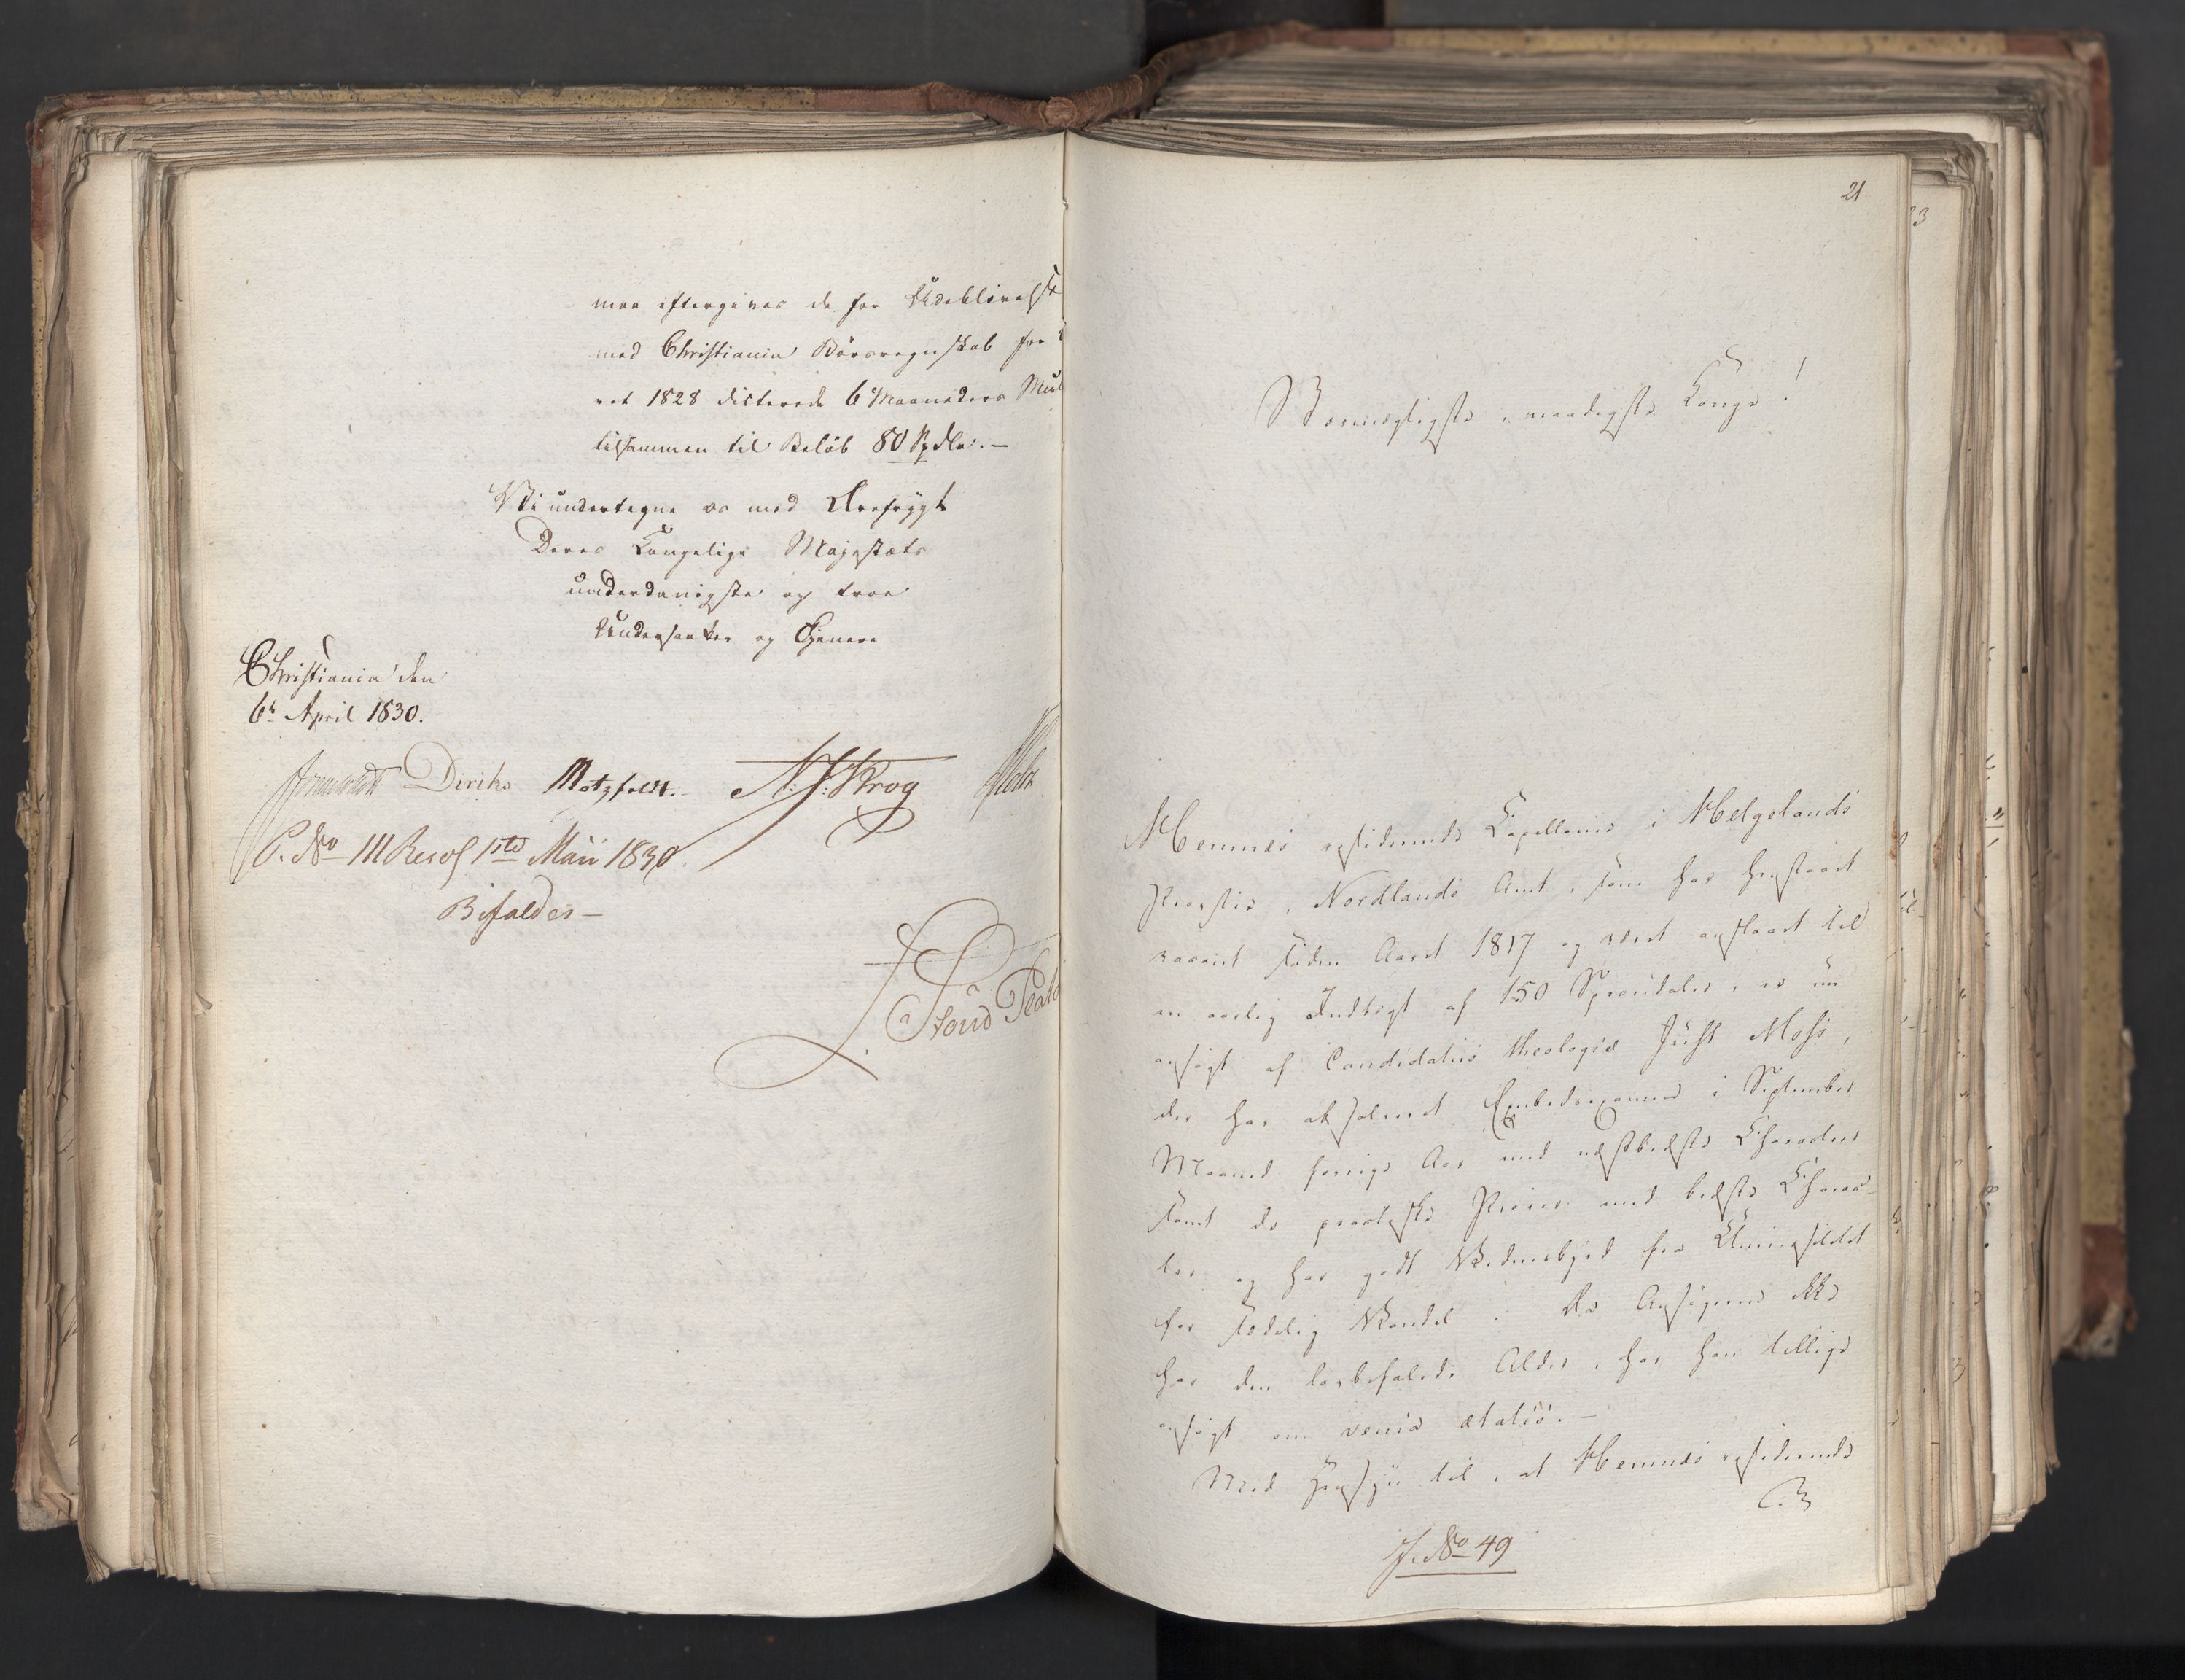 maa eftergives de for Udeblivelse
med Christiania Børsregnskab for
ret 1828 dicterede 6 Maaneders Mul
tilsammen til Beløb 80 Spdlr. —
Vi undertegne os med Ærefrygt
Deres Kongelige Majestæts
underdanigste og troe
Undersaatter og Tjenere
Christiania den
6te April 1830.
Diriks Motzfeldt. N: J: Krog Holst
C. No III Resol 1ste Maii 1830.
Bifaldes —
21
Stormægtigste, naadigste Konge!
Hemnes residerende Capellanie i Helgelands
Provstie, Nordlands Amt, som har henstaaet
vacant siden Aaret 1817 og været anslaaet til
en aarlig Indtægt af 150 Speciedaler, er nu
ansøgt af Candidatus theologiæ Just Moss,
der har absolveret Embedsexamen i September
Maaned forrige Aar med næstbedste Characteer
samt de practiske Prøver med bedste Charac-
ter og har godt Vidnesbyrd fra Universitetet
for sædelig Vandel. Da Ansøgeren ikke
har den lovbefalede Alder, har han tillige
ansøgt om venia ætatis. —
Med Hensyn til, at Hemnes residerende
C. 3
J. No 49